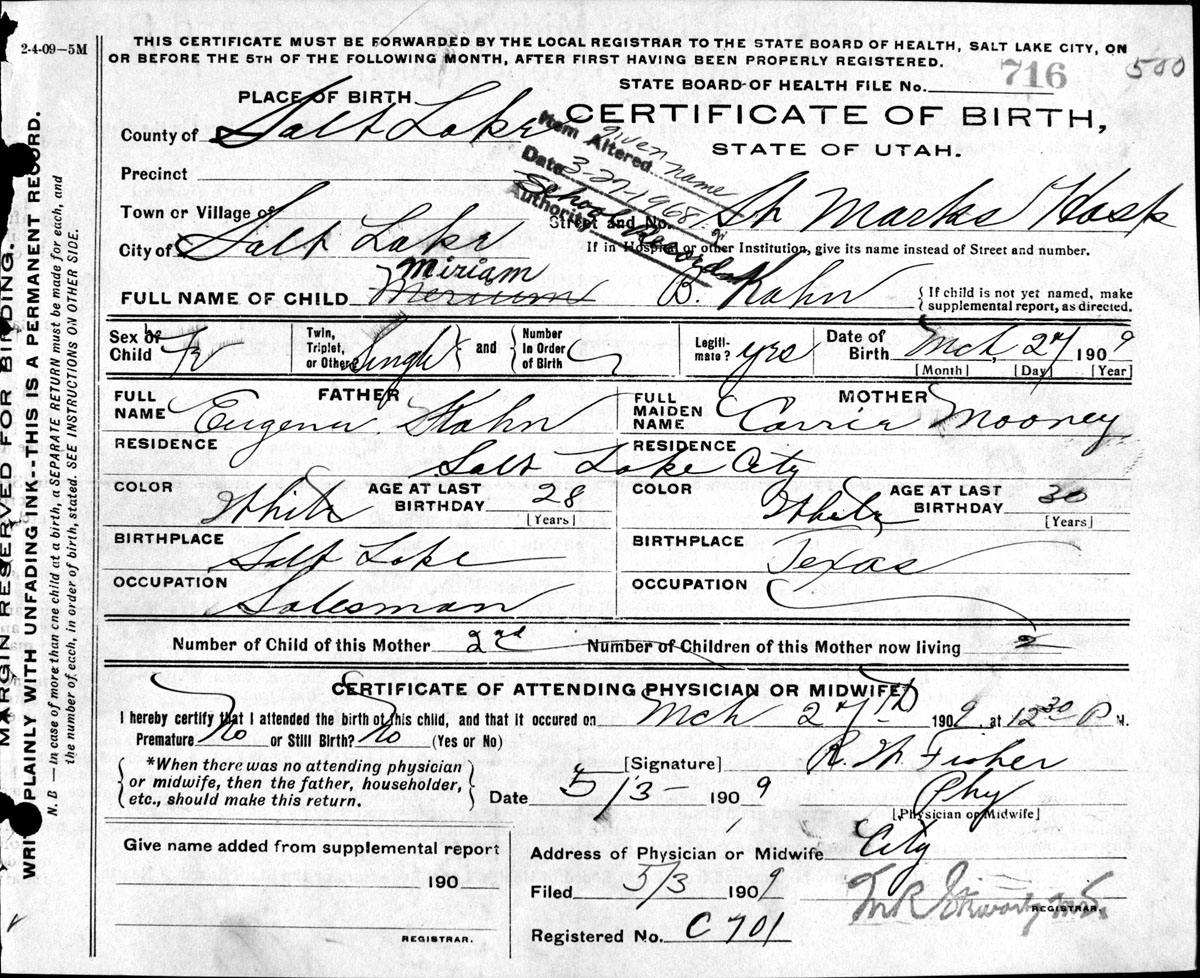 2-4-09—5M
THIS CERTIFICATE MUST BE FORWARDED BY THE LOCAL REGISTRAR TO THE STATE BOARD OF HEALTH, SALT LAKE CITY, ON
OR BEFORE THE 5TH OF THE FOLLOWING MONTH, AFTER FIRST HAVING BEEN PROPERLY REGISTERED.
500
STATE BOARD OF HEALTH FILE No. 716
PLACE OF BIRTH
CERTIFICATE OF BIRTH,
STATE OF UTAH.
County of Salt Lake
Item Altered given name
Date 3-27-1968
Authority School Record
Precinct
Town or Village of
Street and No. St Marks Hosp
City of Salt Lake
If in Hospital or other Institution, give its name instead of Street and number.
Miriam
FULL NAME OF CHILD Merium B. Kahn
If child is not yet named, make
supplemental report, as directed.
Sex of Child F
Twin, Triplet, or Other Single and Number in Order of Birth
Legitimate? yes
Date of Birth Mch, 27 1909
[Month] [Day] [Year]
FATHER
FULL NAME Eugene Kahn
MOTHER
FULL MAIDEN NAME Carrie Mooney
RESIDENCE RESIDENCE
Salt Lake City
COLOR White AGE AT LAST BIRTHDAY 28 [Years]
COLOR White AGE AT LAST BIRTHDAY 30 [Years]
BIRTHPLACE Salt Lake
BIRTHPLACE Texas
OCCUPATION Salesman
OCCUPATION
Number of Child of this Mother 2nd Number of Children of this Mother now living 2
CERTIFICATE OF ATTENDING PHYSICIAN OR MIDWIFE
I hereby certify that I attended the birth of this child, and that it occured on Mch 27th 1909, at 12 30 P M.
Premature No or Still Birth? No (Yes or No)
*When there was no attending physician
or midwife, then the father, householder,
etc., should make this return.
[Signature] R. W. Fisher
Date 5/3- 1909
Phy
[Physician or Midwife]
Give name added from supplemental report
190
REGISTRAR.
Address of Physician or Midwife City
Filed 5/3 1909
REGISTRAR.
Registered No. C 701
MARGIN RESERVED FOR BINDING.
WRITE PLAINLY WITH UNFADING INK--THIS IS A PERMANENT RECORD.
N. B — In case of more than one child at a birth, a SEPARATE RETURN must be made for each, and
the number of each, in order of birth, stated. SEE INSTRUCTIONS ON OTHER SIDE.